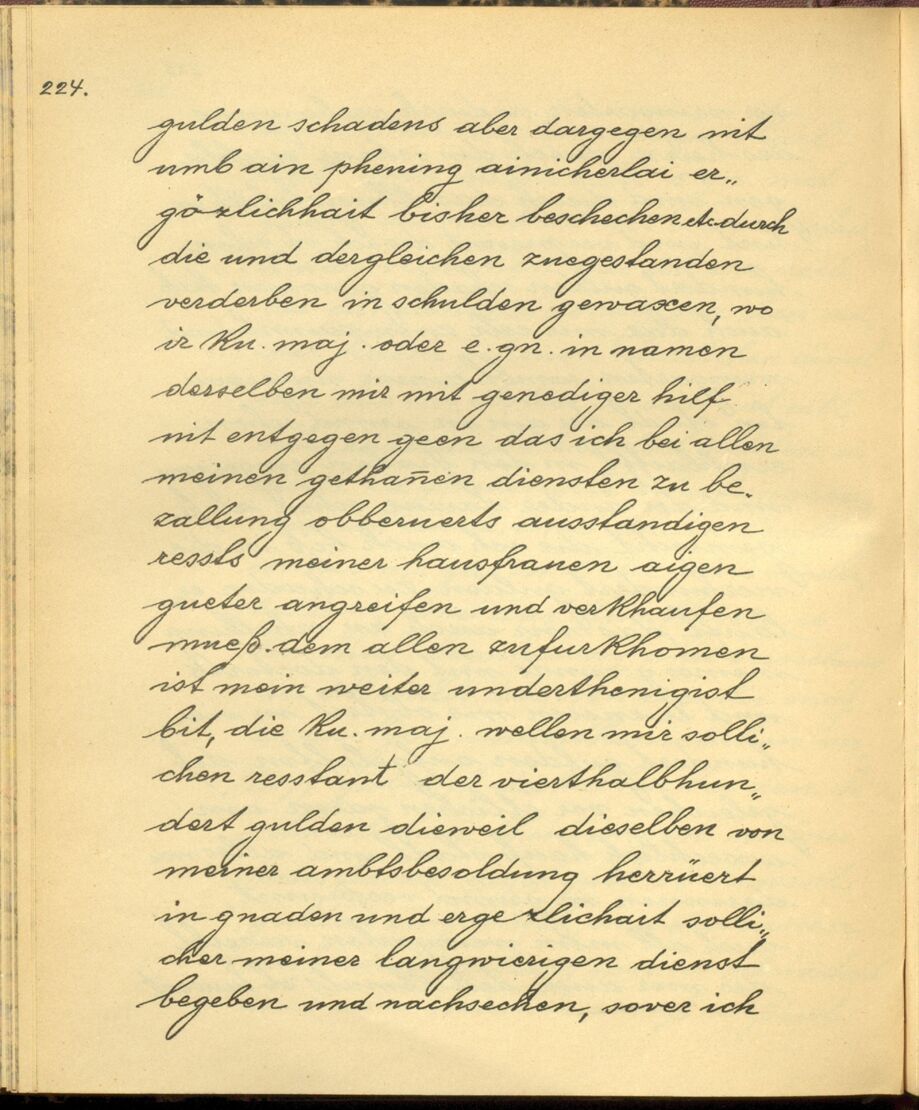 224.
gulden schadens aber dargegen nit
umb ain phening ainicherlai er„
gözlichhait bisher beschechen etc durch
die und dergleichen zuegestanden
verderben in schulden gewaxen, wo
ir Ku. maj. oder e. gn. in namen
derselben mir mit genediger hilf
nit entgegen geen das ich bei allen
meinen gethan̄en diensten zu be„
zallung obberuerts ausstandigen
ressts meiner hausfrauen aigen
gueter angreifen und verkhaufen
mueß. dem allen zufurkhomen
ist mein weiter underthenigist
bit, die Ku. maj. wellen mir solli„
chen resstant der vierthalbhun„
dert gulden dieweil dieselben von
meiner ambtsbesoldung herrüert
in gnaden und ergezlichait solli„
cher meiner langwierigen dienst
begeben und nachsechen, sover ich